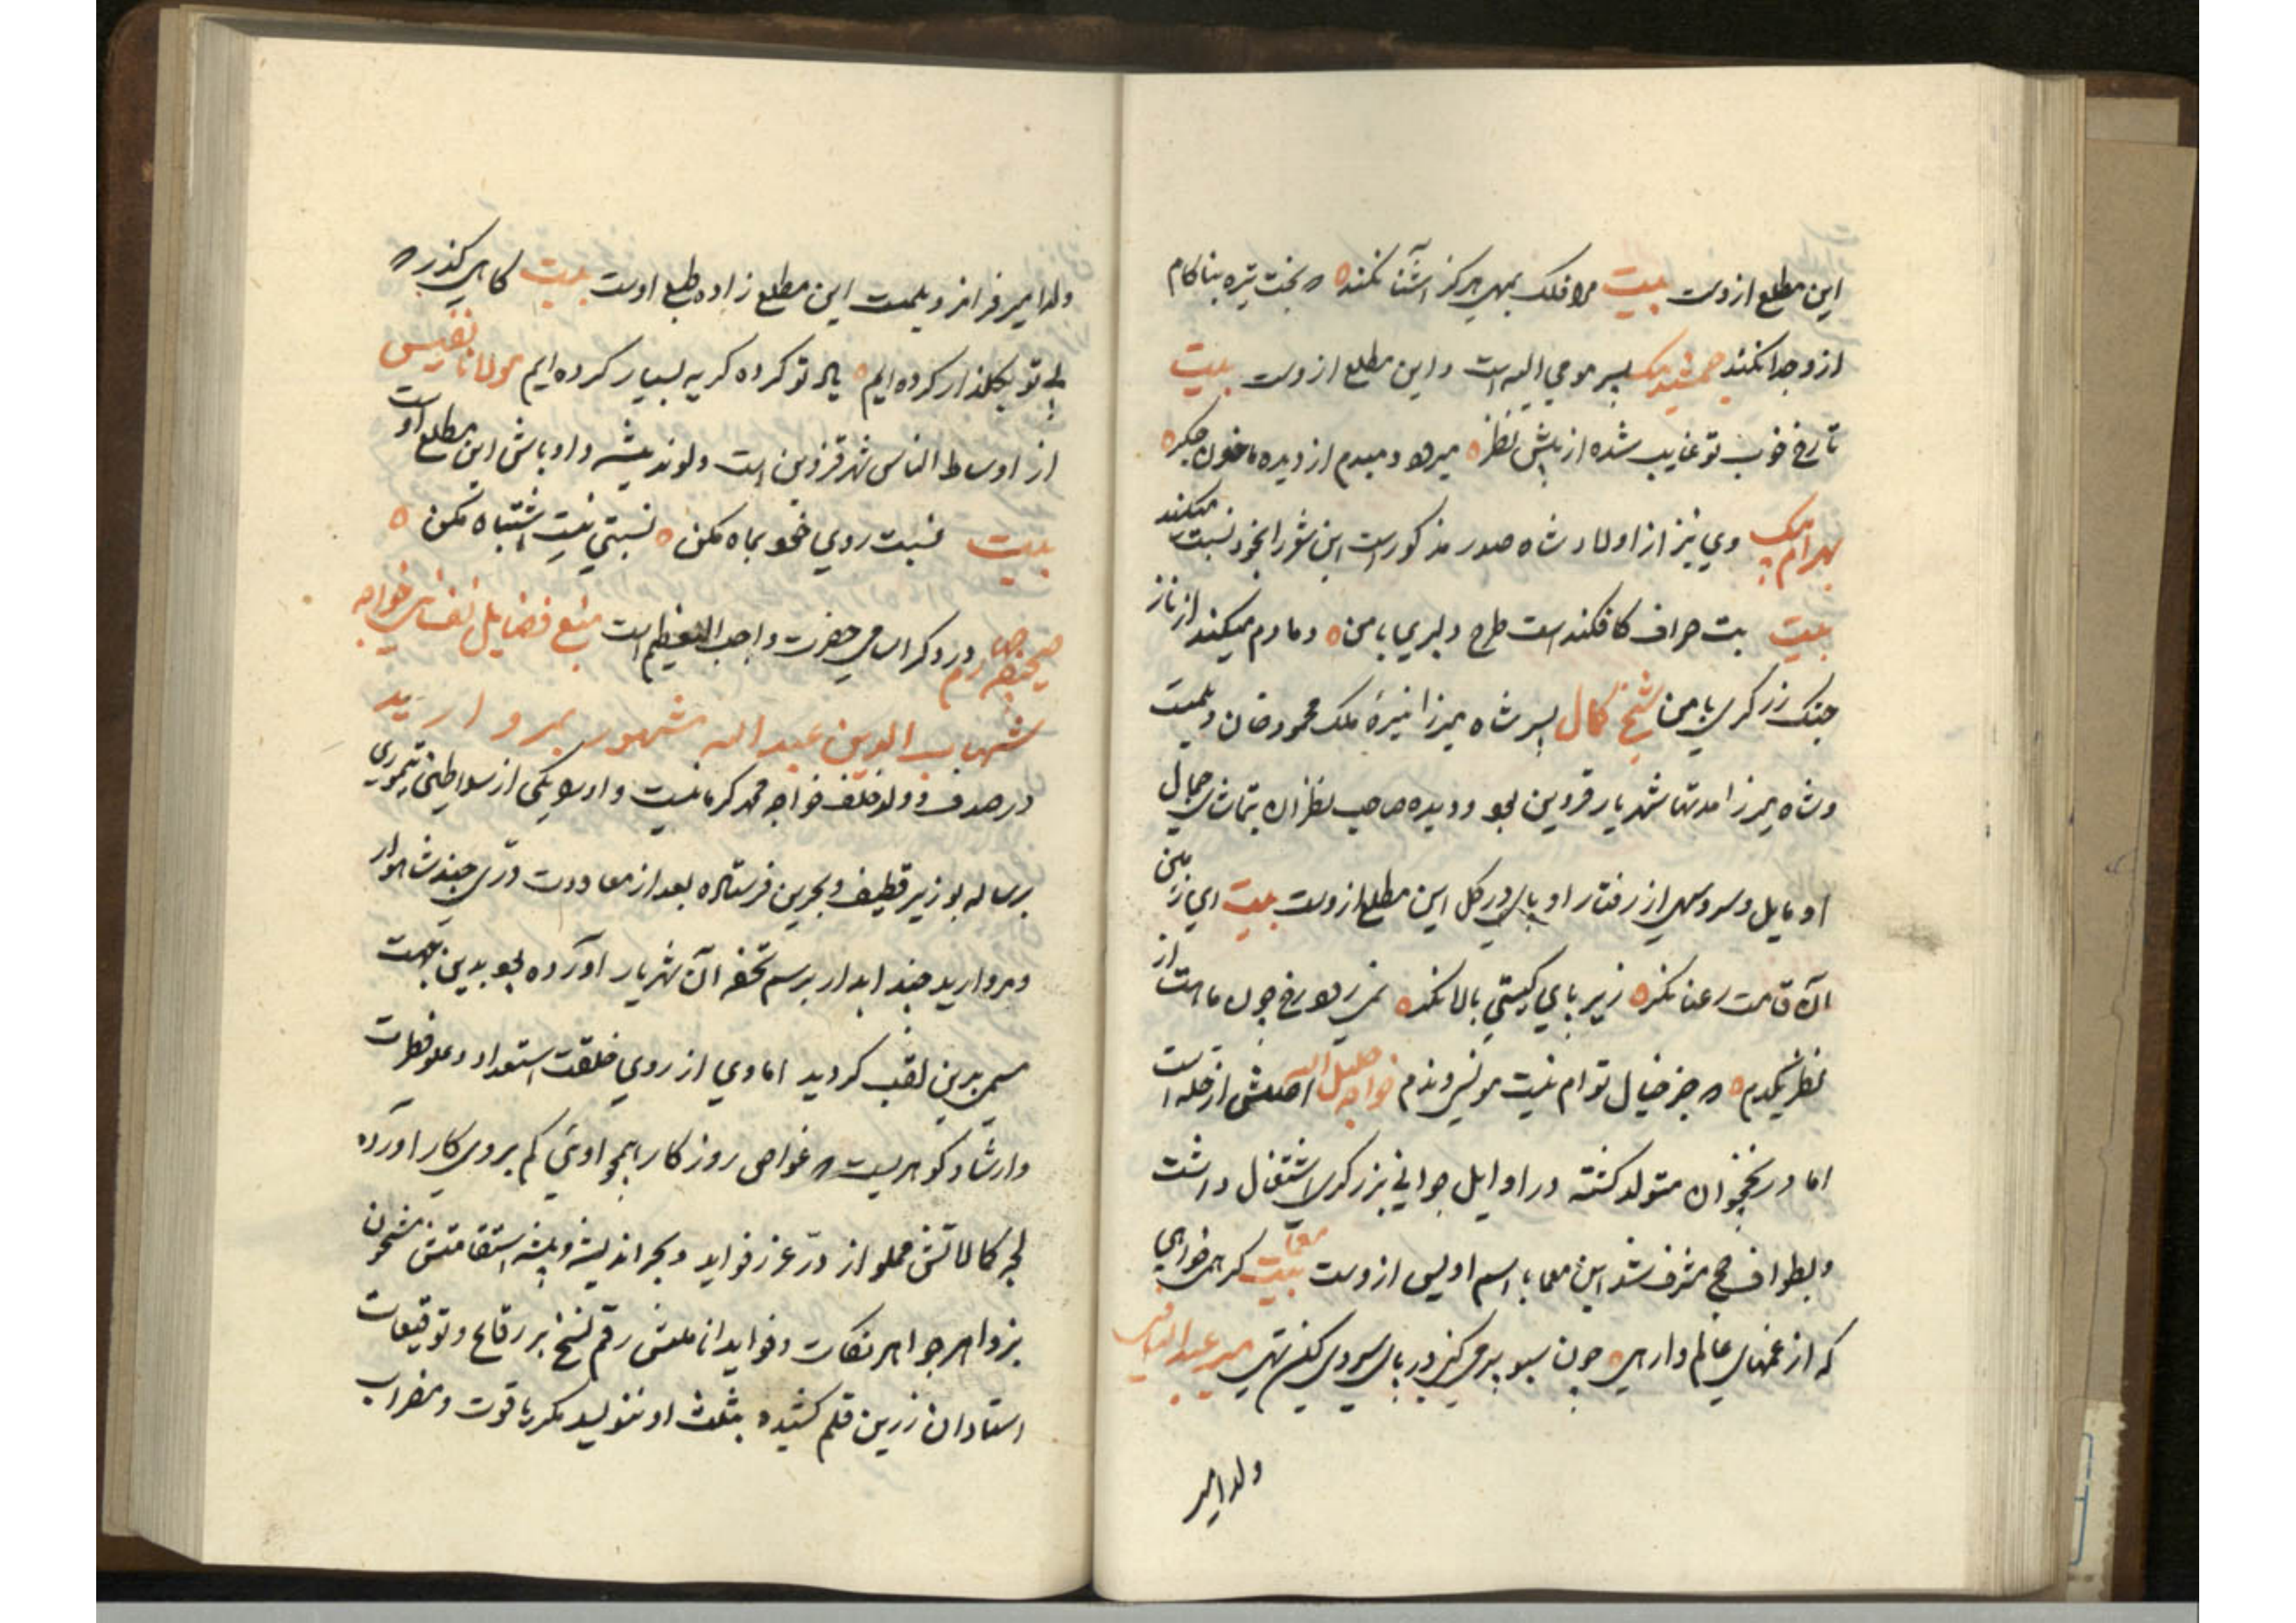 این مطلع ازوست بیت مرا فلک بمهی هرکز آشنا نکند که بخت تیره بناکام
ازو جدا نکند جمشید بیک پسر مومی الیه است و این مطلع ازوست بیت
تا رخ خوب تو غایب شده از پیش نظر میرود دمبدم از دیده ما خون جکر
بهرام بیک وی نیز از اولاد شاه صدر مذکور است این شعر را بخود نسبت میکند
بیت بت صراف کافکندست طرح دلبری با من دمادم میکند از ناز
جنک زرکری با من شیخ کمال پسر شاه میرزا نبیرهٔ ملک محمود خان دیلمیست
و شاه میرزا مدتها شهریار قزوین بود و دیده صاحب نظران بتماشای جمال
او مایل و سرو سهی از رفتار او پای در کل این مطلع ازوست بیت ای زمین
آن قامت رعنا نکر زیر پای کیستی بالا نکر رخ چون ماهت از
نظر یکدم که جز خیال توام نیست مونس و ندم خواجه خلیل الله اصلش از حله است
اما در نخجوان متولد کشته در اوایل جوانی بزرکری اشتغال داشت
و بطواف حج مشرف شد این معما باسم اویس ازوست معما بیت کر همی خواهی
که از غمهای عالم وارهی چون سبو پر می کنی در پای سروی کن تهی میر عبدالباقی
ولد امیر
ولد امیر فرامرز دیلمیست این مطلع زاده طبع اوست بیت کاهی کذر که
بی تو بکلزار کرده ایم یاد تو کرده کریه بسیار کرده ایم مولانا نفیس
از اوساط الناس شهر قزوین است و لوند پیشه و اوباش این مطلع اوست
بیت نسبت روی خود بماه مکن نسبتی نیست اشتباه مکن
صحیفه در ذکر اسامی حضرت واجب التعظیم است منبع فضایل نفسانی خواجه
شهاب الدین عبد الله مشهور بمروارید
در صدف وولد خلف خواجه محمد کرمانیست و او را یکی از سلاطین تیموری
برساله بوزیر قطیف و بحرین فرستاده بعد از معاودت دری چند شاهوار
و مروارید چند ابدار برسم تحفه آن شهریار آورده بود بدین جهت
مسمی بدین لقب کردید اما وی از روی خلقت استعداد و علو فطرت
وارشاد کوهریست که غواص روزکار همچو اویی کم بروی کار آورده
لجه کمالاتش مملو از درّ غرر فواید و بحر اندیشه و بیشه استقامتش مشحون
بزواهر جواهر نکات و فواید اناملش رقم نسخ بر رقاع و توقیعات
استادان زرین قلم کشیده بثلث او ننویسد مکر یاقوت و مضراب